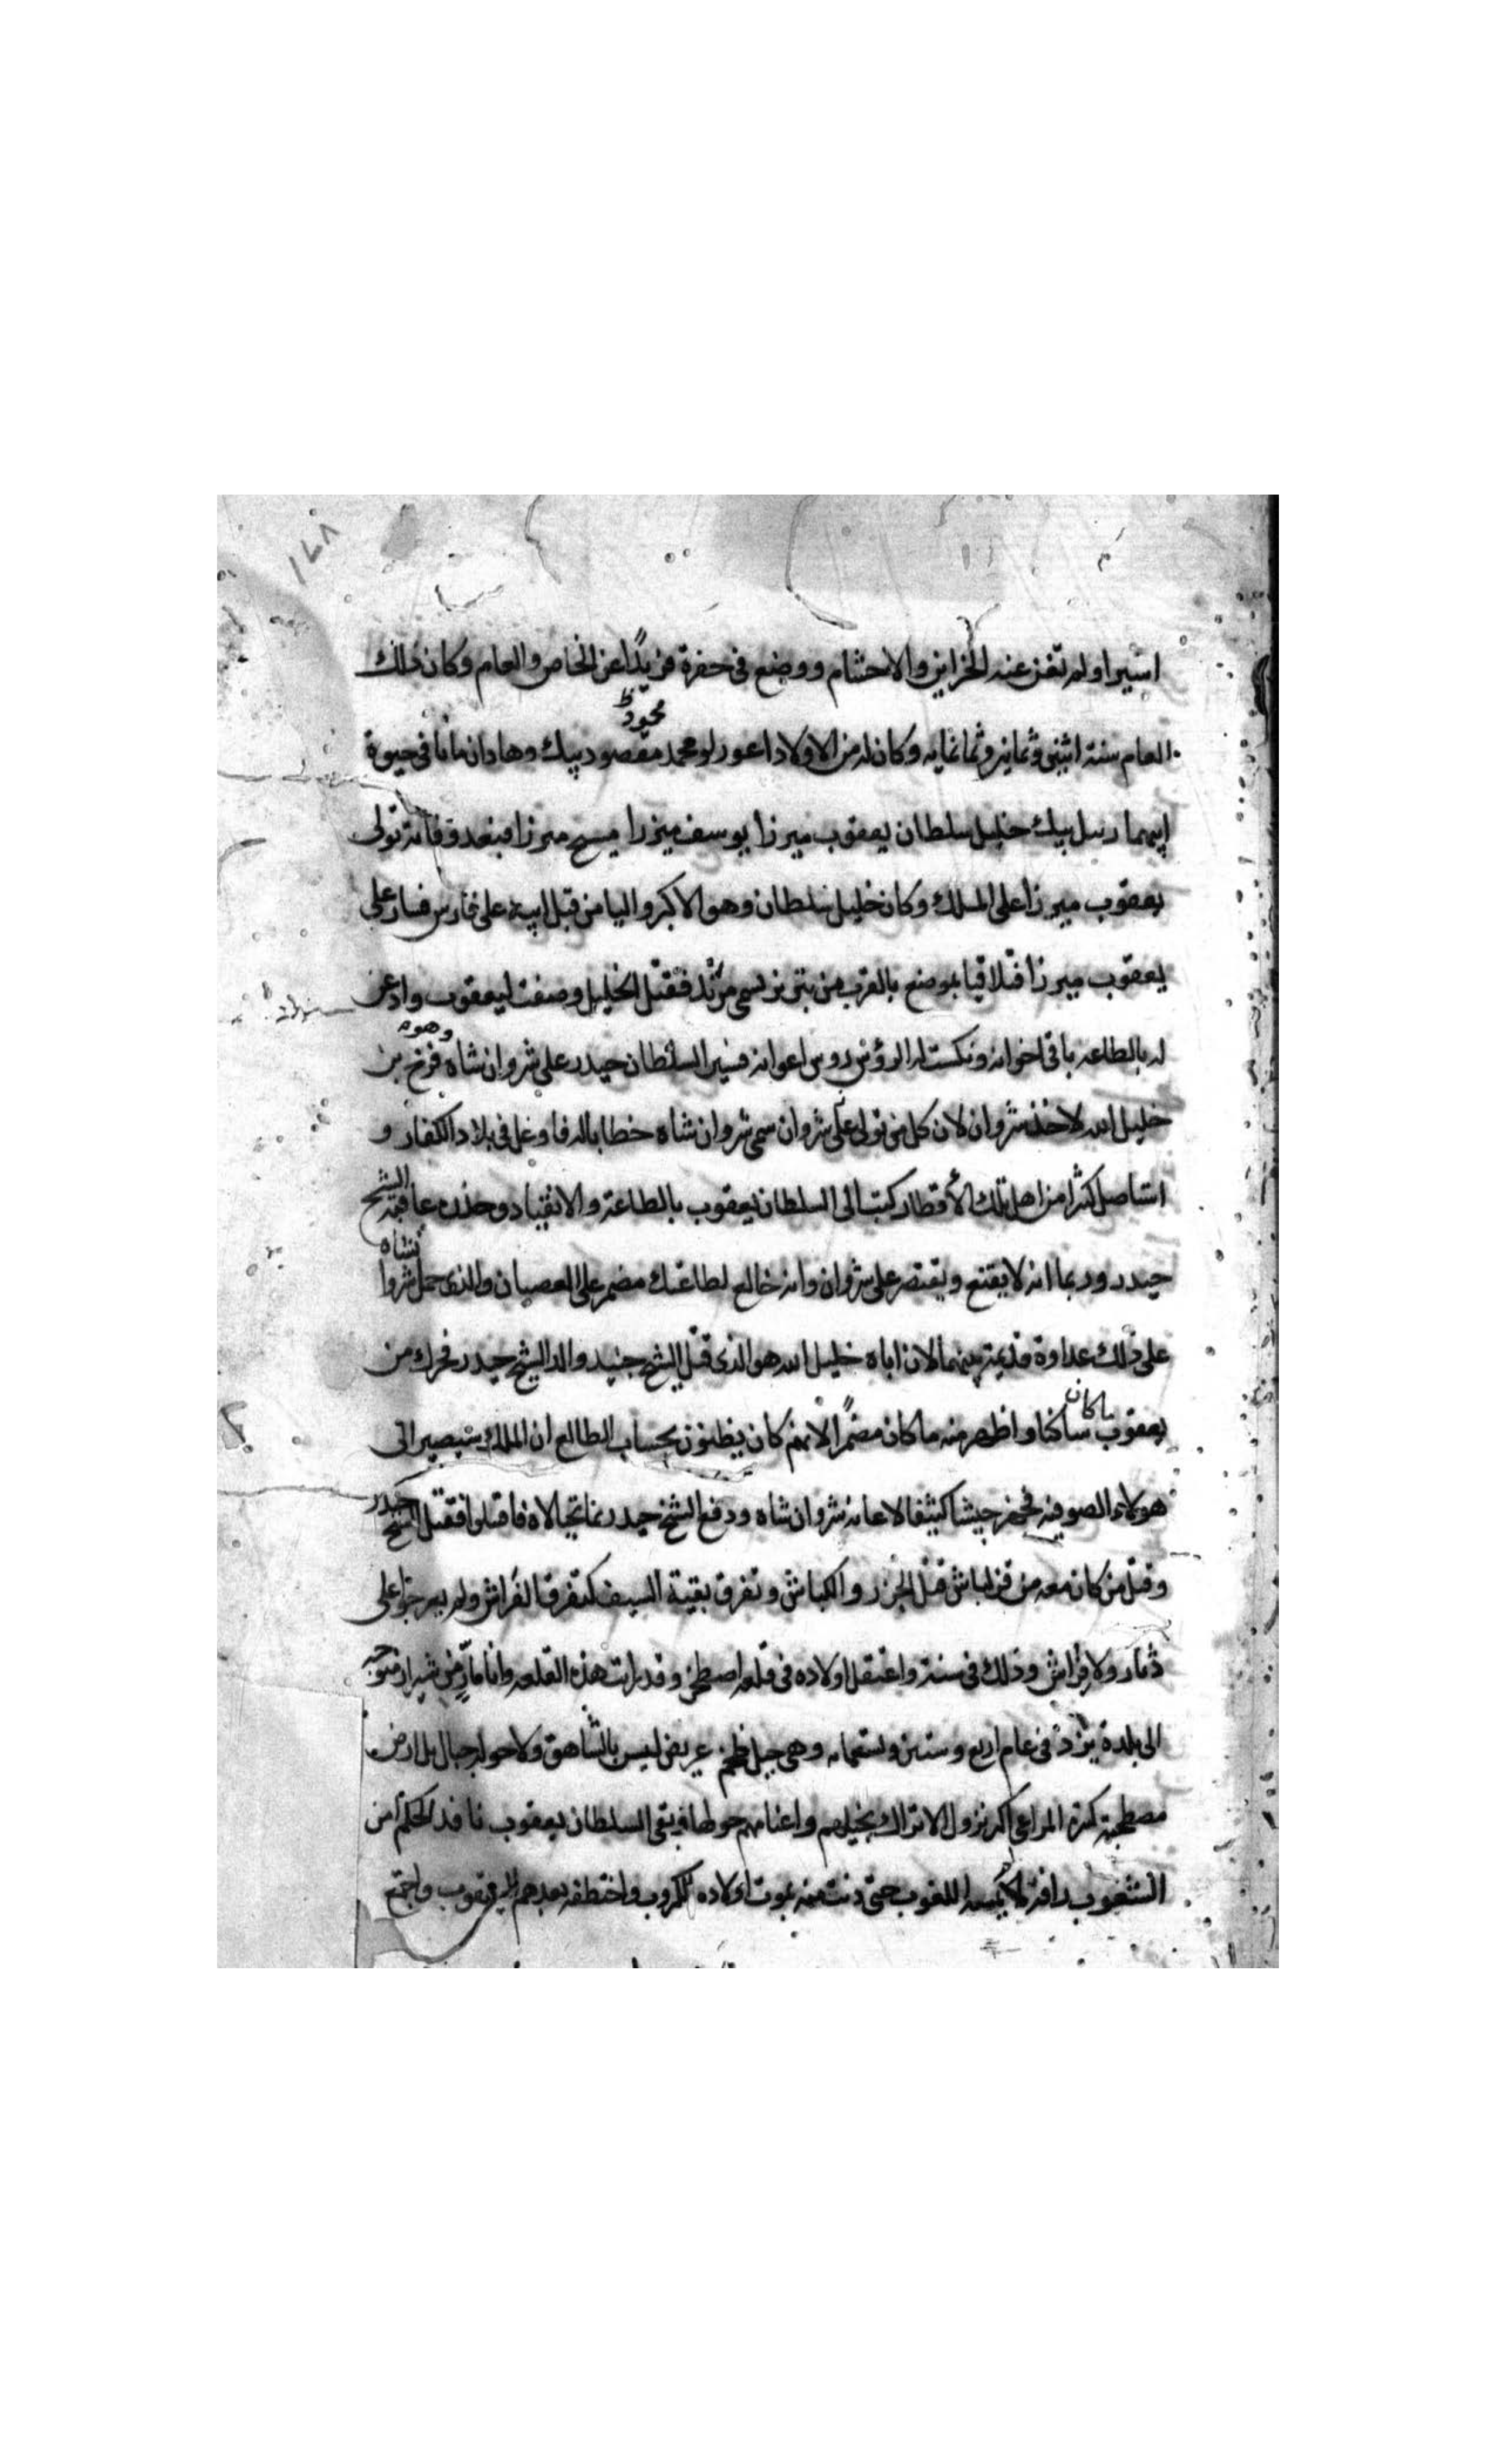 ١٧٨
اسيرا ولم تغن عنه الخزاين والاحتشام ووضع في حفرة فريدًا عن الخاص والعام وكان ذلك
العام سنة اثنى وثمانين وثمانمايه وكان له من الاولاد اعورلو محمد مقصود بيك وهادان ماتا في حيوة
محمود
ابيهما رسل بيك خليل سلطان يعقوب ميرزا يوسف ميرزا مسيح ميرزا فبعد وفاته تولى
يعقوب ميرزا على الملك وكان خليل سلطان وهو الاكبر واليا من قبل ابيه على فارس فسار على
يعقوب ميرزا فتلاقيا بموضع بالقرب من تبريز يسمى مرند فقتل الخليل وصفت ليعقوب واذعن
له بالطاعه باقى اخوانه ونكست له الرؤس روس اعوانه فسير السلطان حيدر على شروان شاه وهو فرخ بن
خليل الله لاخذ شروان لان كل من تولى على شروان سمى شروان شاه خطابا له فاوغل في بلاد الكفار و
استاصل كثيرا من اهل تلك الأقطار كتب الى السلطان يعقوب بالطاعة والانقياد وحذره عاقبة الشيخ
حيدر وربما انه لا يقنع ويقتصر على شروان وانه خالع لطاعتك مضمر على العصيان والذى حمل شروانشاه
على ذلك عداوة قديمة بينهما لان اباه خليل الله هو الذى قتل الشيخ جنيد والد الشيخ حيدر فحرك من
يعقوب ما كان ساكنا واظهر منه ما كان مضمرًا لانهم كان يظنون بحساب الطالع ان الملك سيصير الى
هولاء الصوفيه فجهز جيشا كثيفا لاعانة شروان شاه ودفع الشيخ حيدر عما تحالاه فاقتلوا فقتل الشيخ حيدر
وقتل من كان معه من قزلباش قتل الجزر والكباش وتفرق بقية السيف كتفرق الفراش ولم يعرجوا على
دثار ولا فراش وذلك في سنة واعتقل اولاده في قلعه اصطخر وقد رايت هذه القلعه وانا مارّ من شيراز متوجه
الى بلدة يزد في عام اربع وستين وتسعمايه وهى جبل ضخم عريض ليس بالشاهق ولا حوله جبال بل ارض
مصطحبة كثيرة المراعى اكثر نزول الاتراك بخيلهم واغنامهم حولها فبقى السلطان يعقوب نافذ الحكم امن
الشعوب رافه لا يمسه اللغوب حتى دنت منه بموت اولاده الكروب واختطفه بعدهم